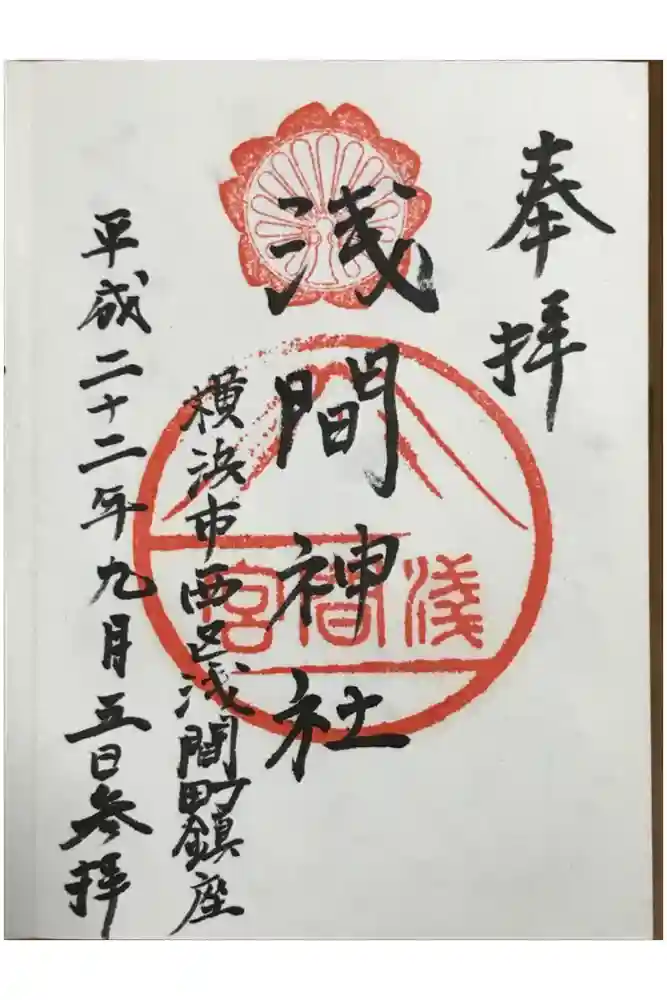 奉拝
浅間神社
淺間宮
横浜市西区浅間町鎮座
平成二十二年九月五日参拝